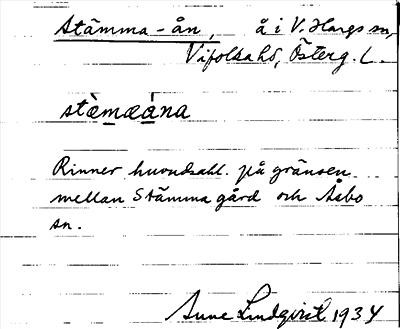 Stämma-ån, å i V. Hargs sn,
Vifolkahd, Österg. L.
stæ̀mæána
Rinner huvudsakl. på gränsen
mellan Stämma gård och Åsbo
sn.
Sune Lindqvist 1934